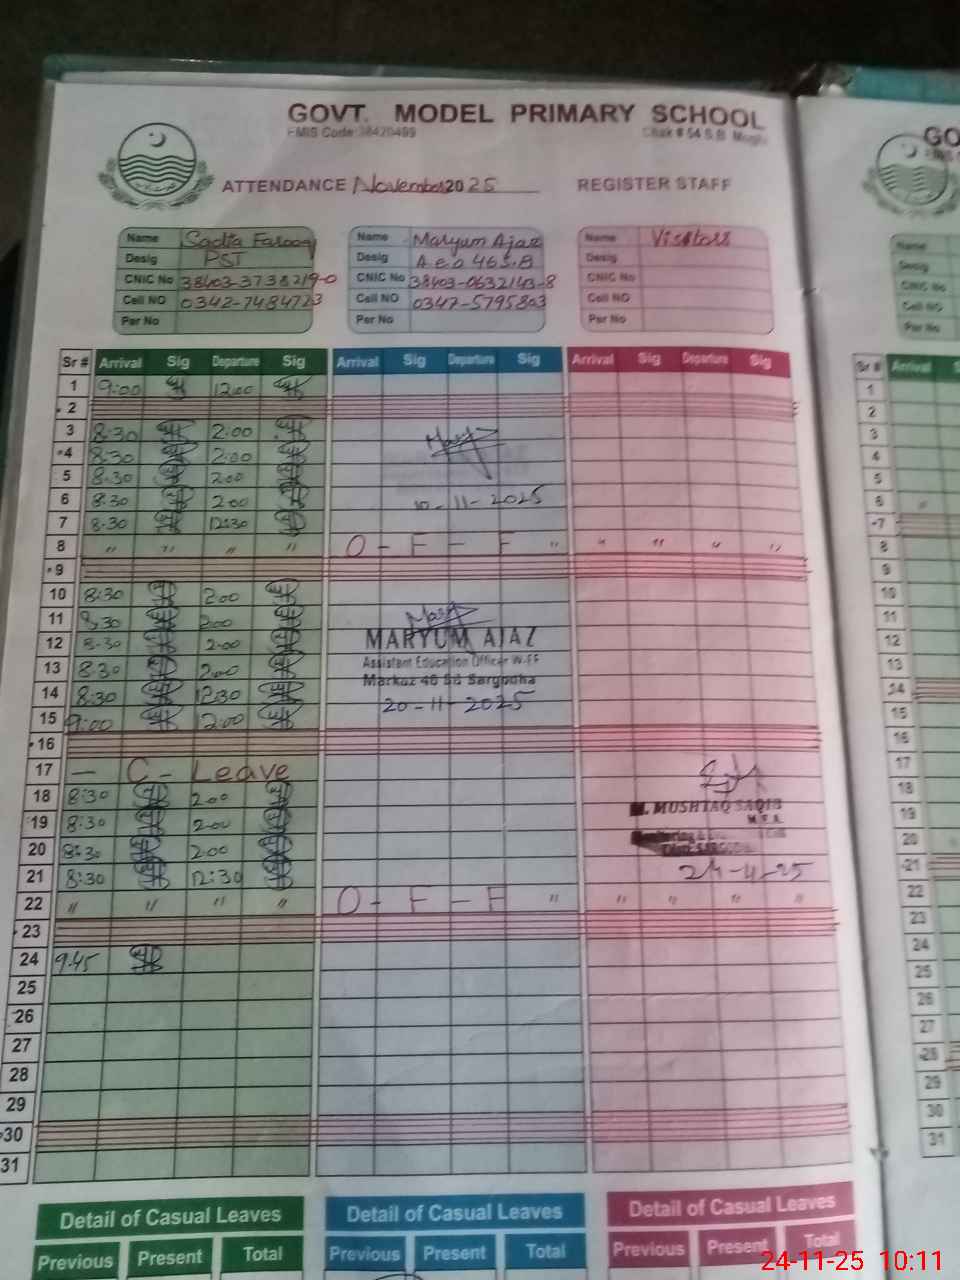 GOVT. MODEL PRIMARY SCHOOL
EMIS Code:38420499 Chak # 54 S.B
ATTENDANCE November 2025 REGISTER STAFF
Name Sadia Farooq Name Maryum Ajaz Name Visitors
Desig PST Desig A.e.o 46 S.B Desig
CNIC No 38403-3738219-0 CNIC No 38403-0632143-8 CNIC No
Cell NO 0342-7484723 Cell NO 0347-5795803 Cell NO
Per No Per No Per No
Sr # Arrival Sig Departure Sig Arrival Sig Departure Sig Arrival Sig Departure Sig
1 9:00 12:00
2
3 8:30 2:00
4 8:30 2:00
5 8:30 2:00
6 8:30 2:00 10-11-2025
7 8:30 12:30
8 " " " " O - F - F " " " " "
9
10 8:30 2:00
11 8:30 2:00
12 8:30 2:00 MARYUM AJAZ
13 8:30 2:00 Assistant Education Officer W-EE
14 8:30 12:30 Markaz 46 SB Sargodha
15 9:00 12:00 20-11-2025
16
17 — C - Leave
18 8:30 2:00 MUSHTAQ SAQIB
19 8:30 2:00
20 8:30 2:00
21 8:30 12:30
22 " " " " O - F - F " " " " "
23
24 9:45
25
26
27
28
29
30
31
Detail of Casual Leaves Detail of Casual Leaves Detail of Casual Leaves
Previous Present Total Previous Present Total Previous Present Total
GO
Name
Desig
CNIC No
Cell NO
Per No
Sr # Arrival
1
2
3
4
5
6
7
8
9
10
11
12
13
14
15
16
17
18
19
20
21
22
23
24
25
26
27
28
29
30
31
24-11-25 10:11